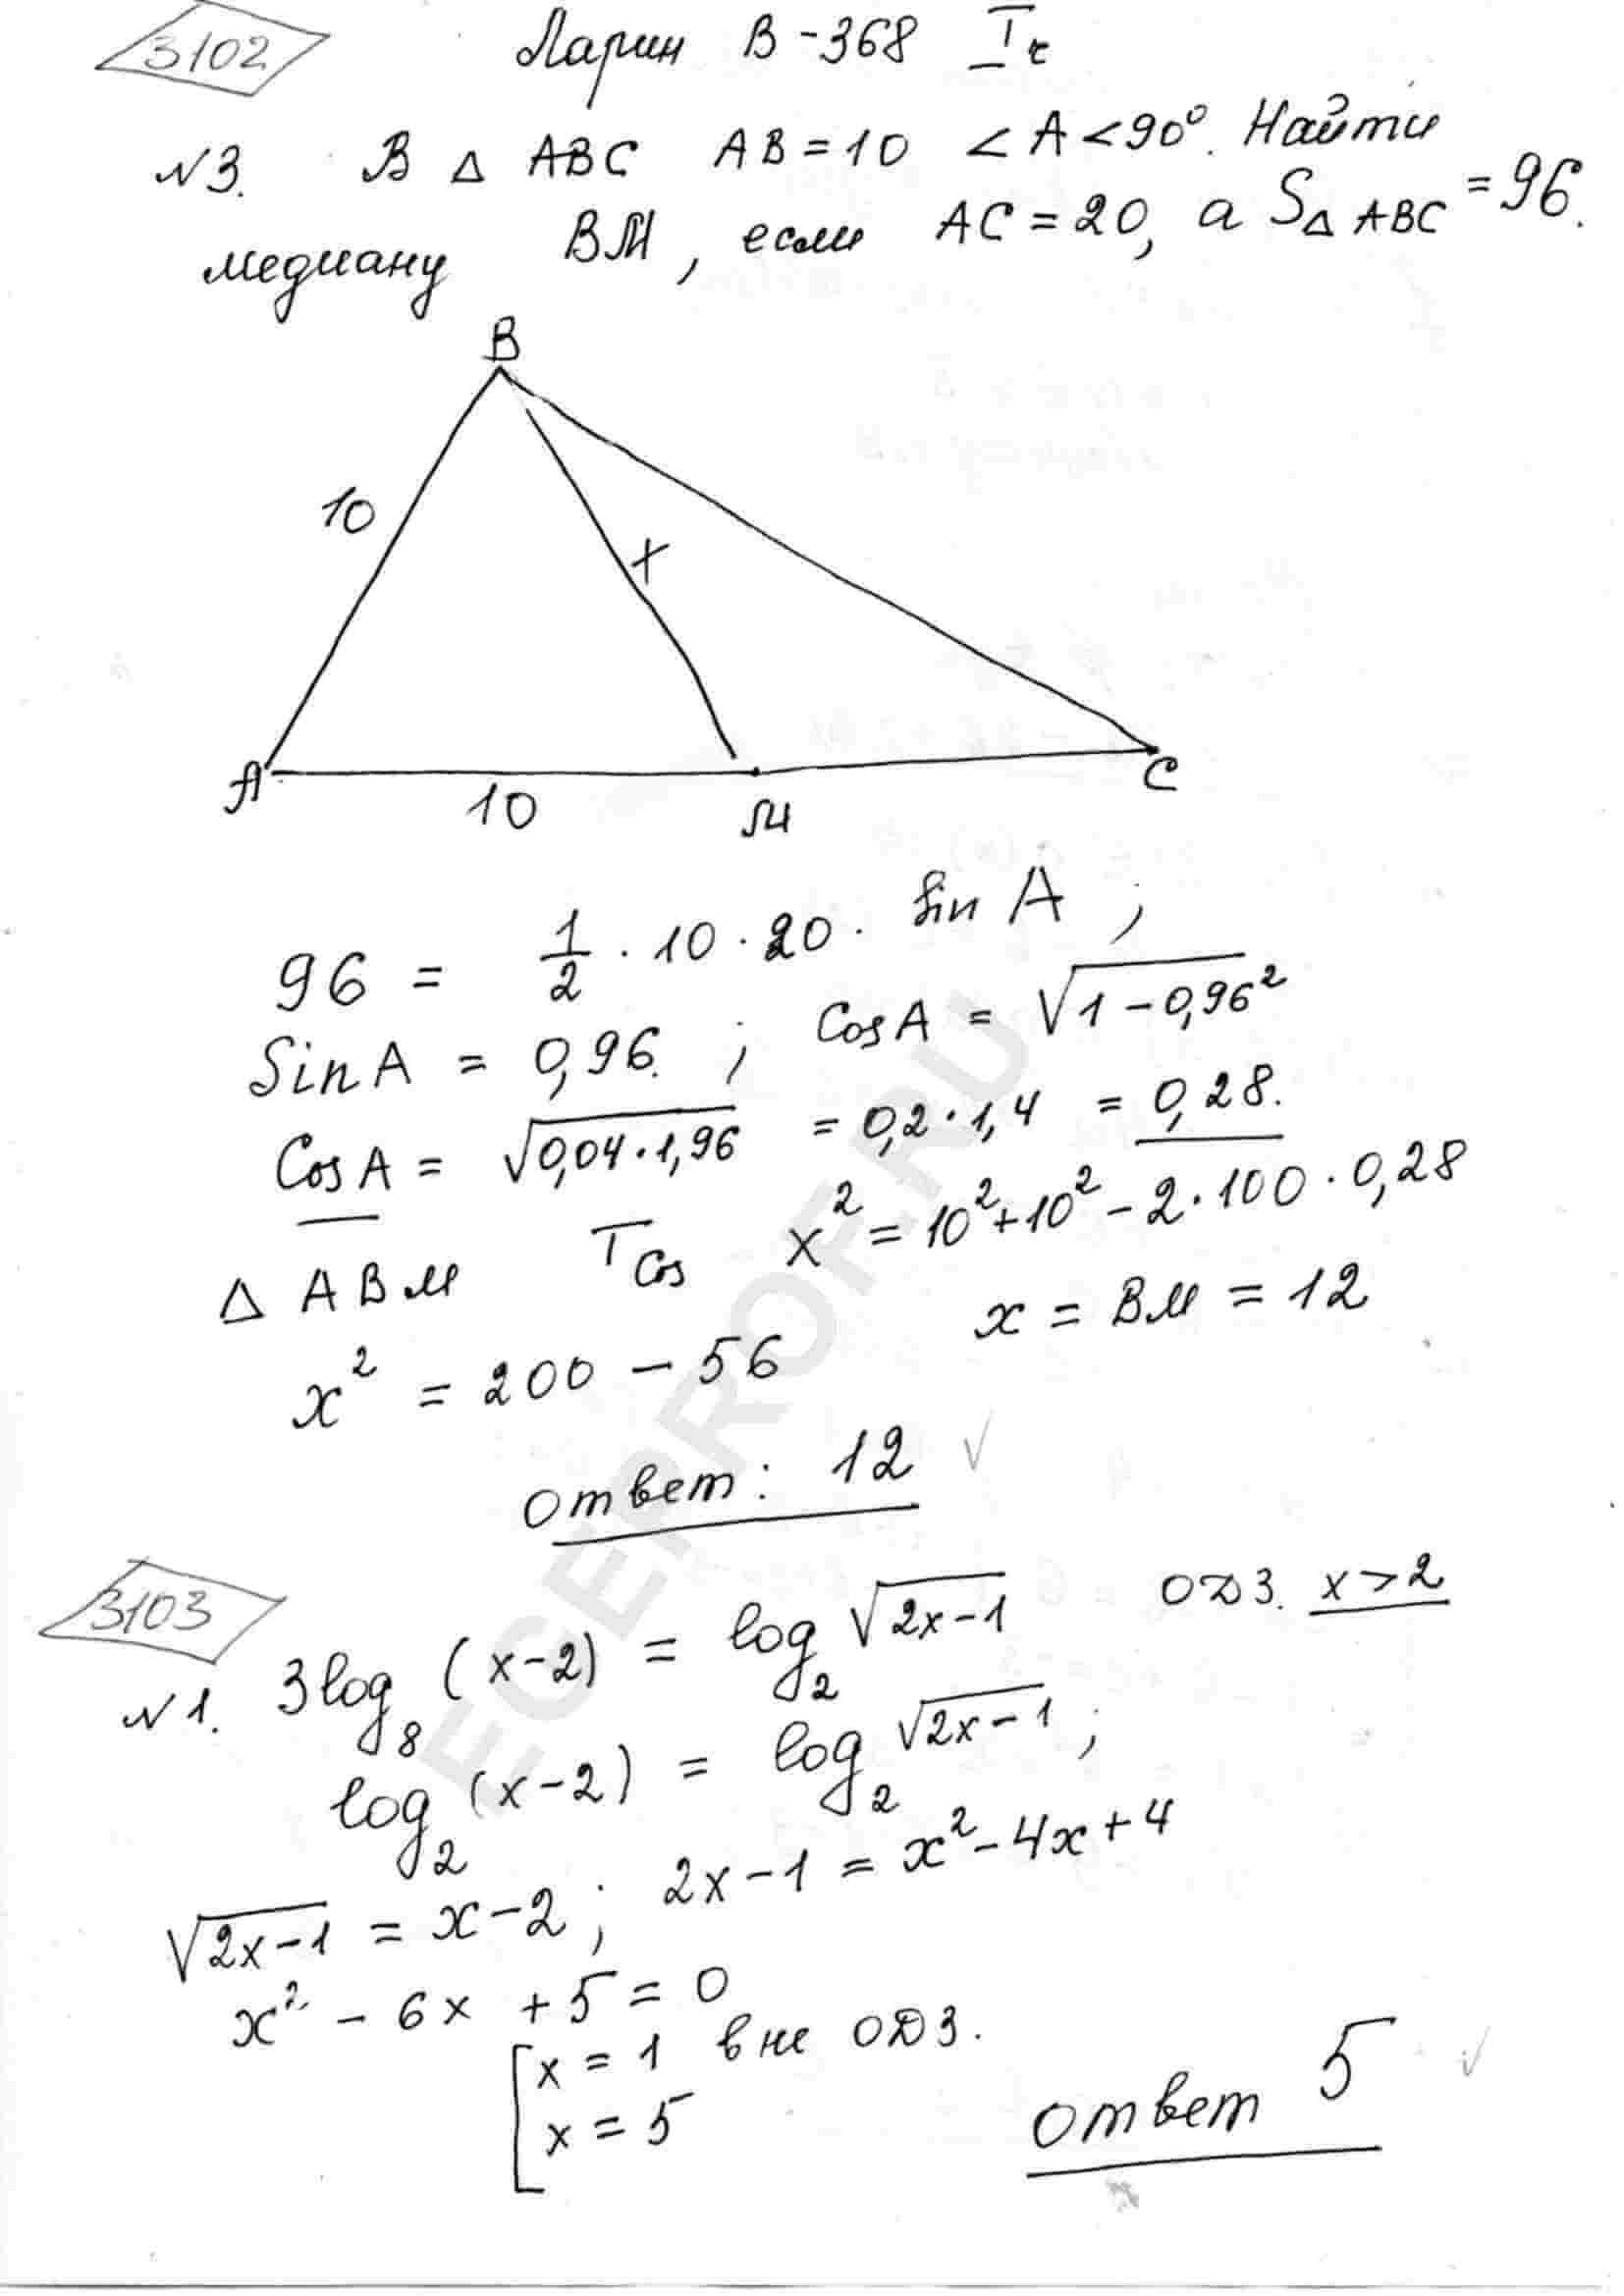 3102
Ларин В-368 I ч
№3. В △ ABC AB = 10 ∠A < 90°. Найти
медиану BM, если AC = 20, а S△ABC = 96.
B
10
x
A
10
M
C
96 = 1/2 · 10 · 20 · Sin A ;
Sin A = 0,96. ; Cos A = √(1 - 0,96²)
Cos A = √(0,04 · 1,96) = 0,2 · 1,4 = 0,28.
△ ABM Tcos x² = 10² + 10² - 2 · 100 · 0,28
x² = 200 - 56 x = BM = 12
ответ: 12 √
3103
№1. 3log₈(x-2) = log₂√(2x-1) ОДЗ. x > 2
log₂(x-2) = log₂√(2x-1) ;
√(2x-1) = x-2 ; 2x-1 = x² - 4x + 4
x² - 6x + 5 = 0
[x = 1 вне ОДЗ.
x = 5
ответ 5 √
EGEPROF.RU